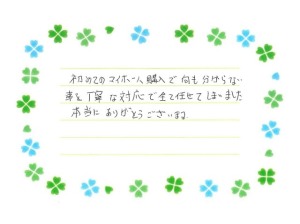 初めてのマイホーム購入で何も分からない
事を丁寧な対応で全て任せてしまいました
本当にありがとうございます